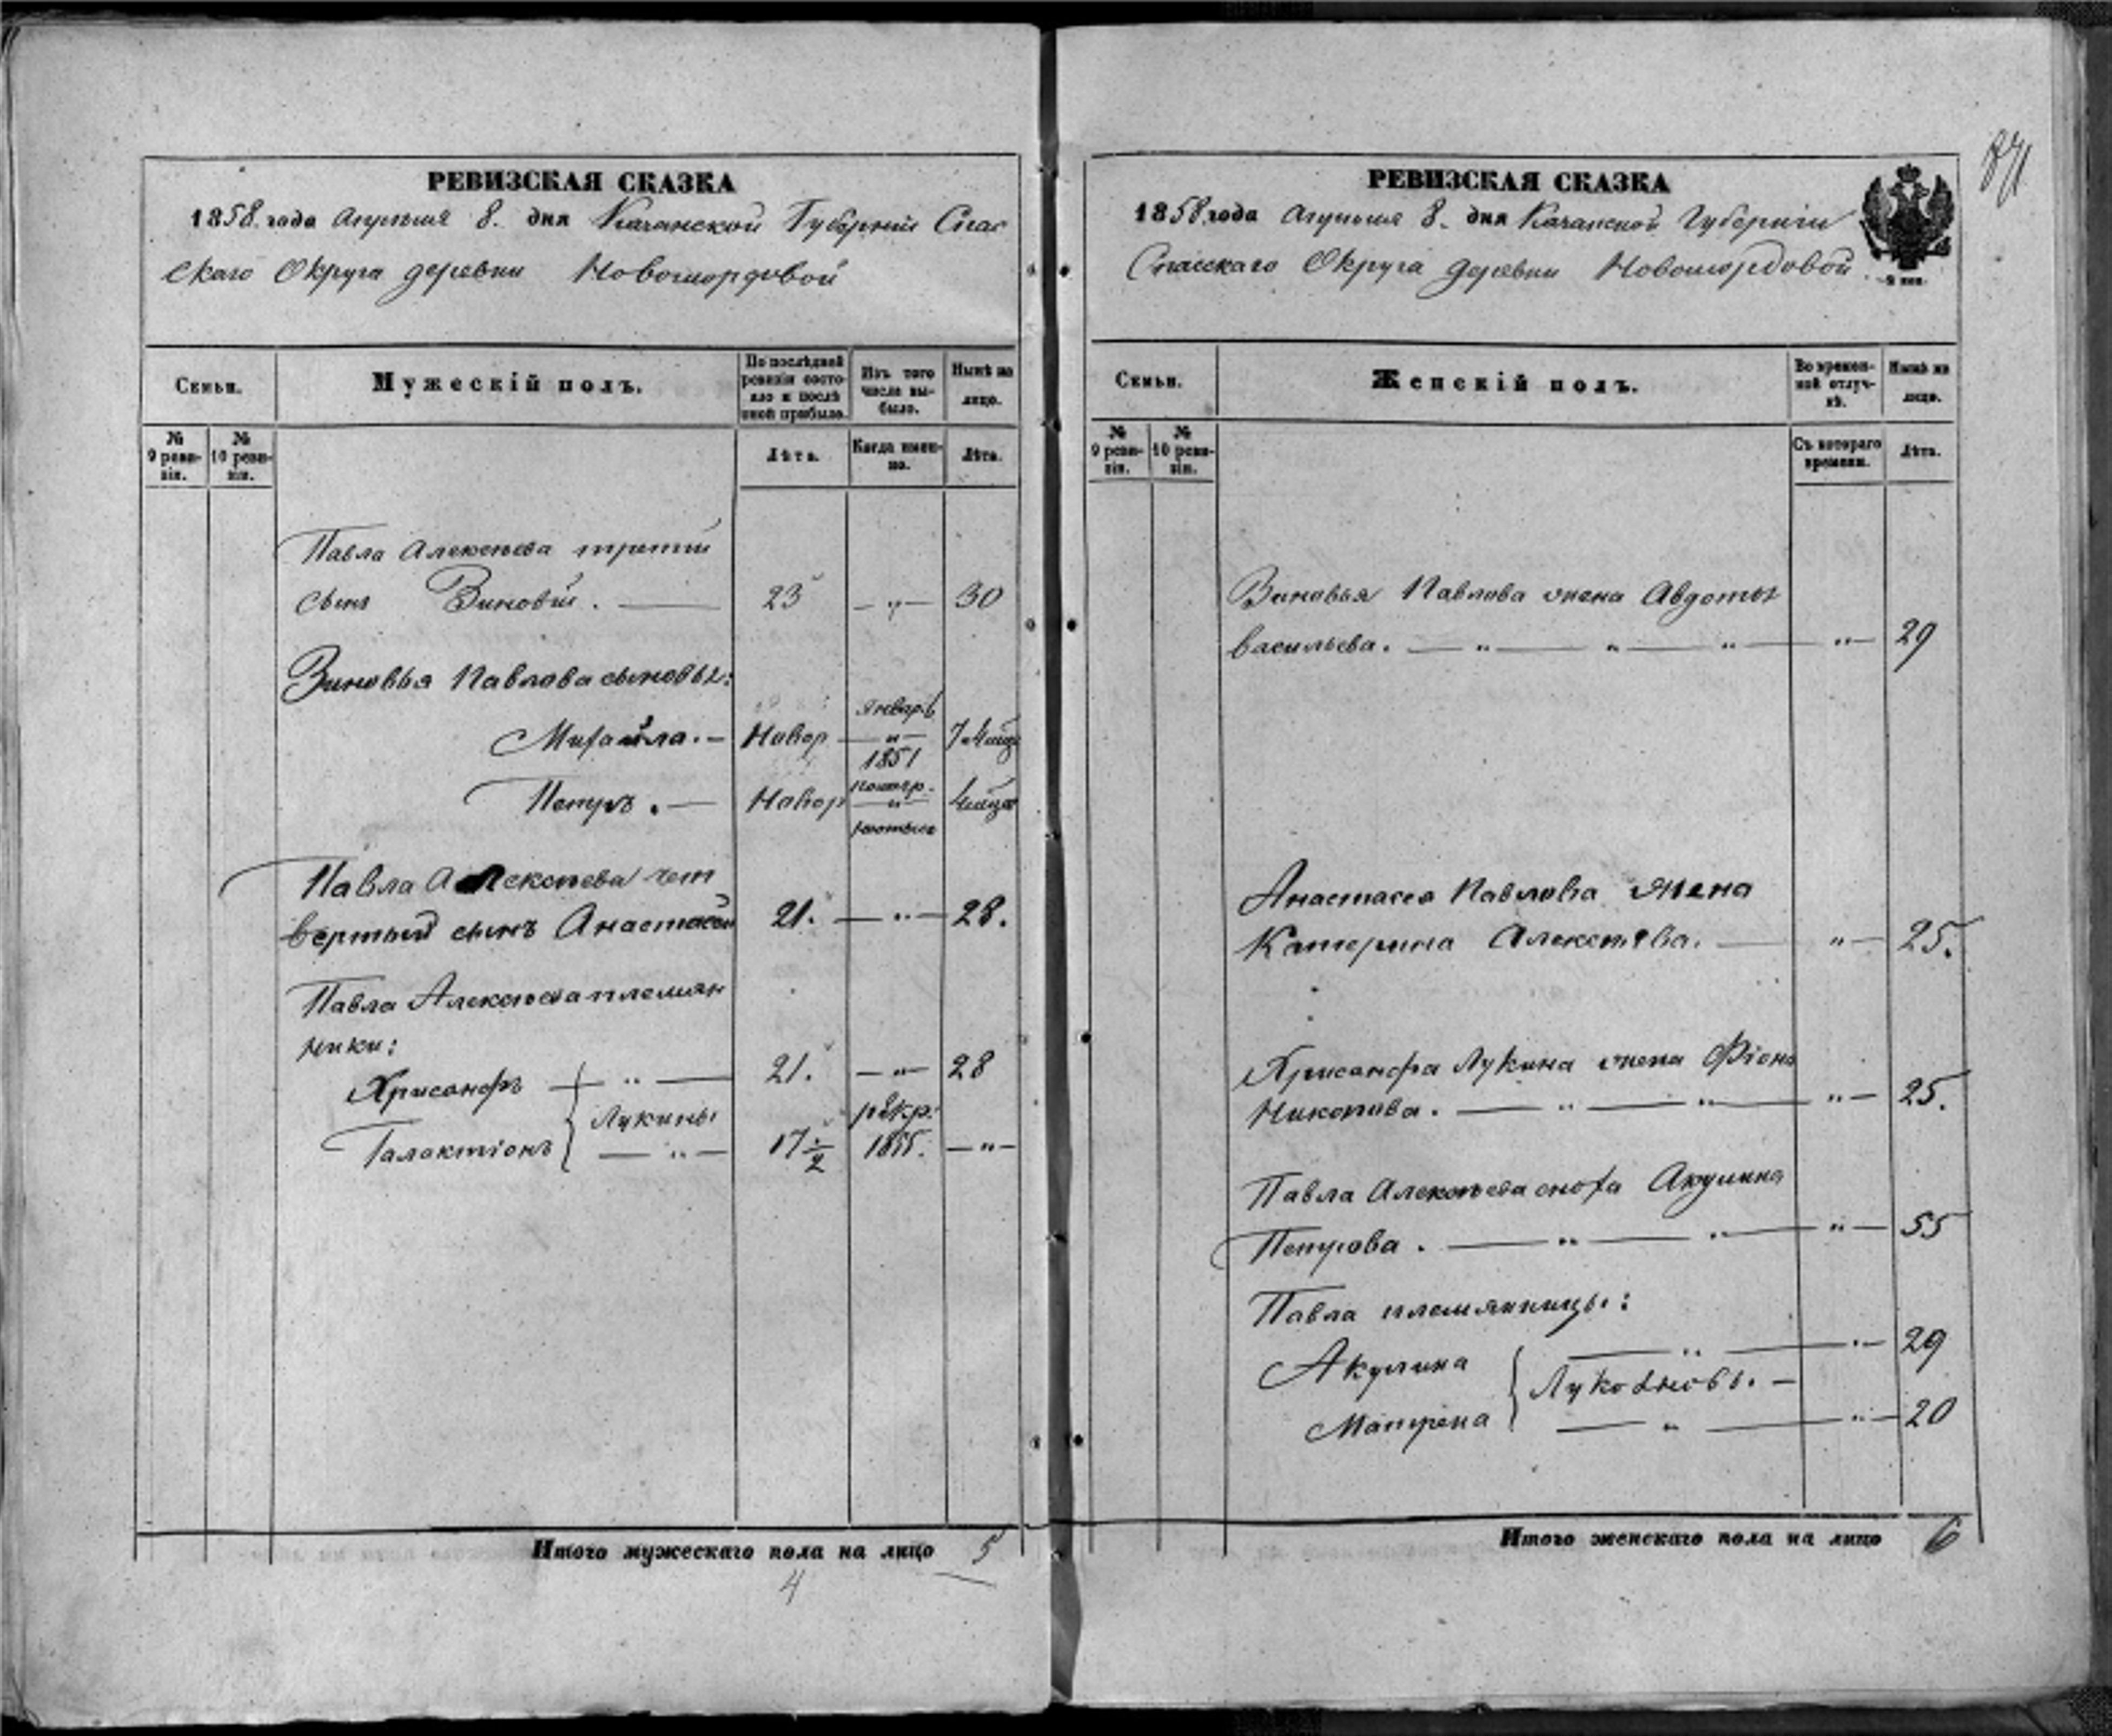 РЕВИЗСКАЯ СКАЗКА
1858. года Апрѣля 8. дня Казанской Губерніи Спас
скаго Округа деревни Новомордовой
Семьи.
Мужескій полъ.
По послѣдней ревизіи состояло и послѣ оной прибыло.
Изъ того числа выбыло.
Нынѣ на лицо.
№ 9 ревизіи.
№ 10 ревизіи.
Лѣта.
Когда именно.
Лѣта.
Павла Алексѣева третій
сынъ Зиновій. — 23 — „ — 30
Зиновья Павлова сыновья:
Январь
Михайла. — Новор — „ — 7
1851
Петръ. — Новор — „ —
Павла Алексѣева чет
вертый сынъ Анастасей 21. — „ — 28.
Павла Алексѣева племян
ники:
Хрисанфъ — „ — 21. — „ — 28
Лукины рекр.
Галактіонъ — „ — 17 1/2 1855. — „ —
Итого мужескаго пола на лицо 5
4
РЕВИЗСКАЯ СКАЗКА
1858 года Апрѣля 8. дня Казанской Губерніи
Спасскаго Округа деревни Новомордовой
Семьи.
Женскій полъ.
Во временной отлучкѣ.
Нынѣ на лицо.
№ 9 ревизіи.
№ 10 ревизіи.
Съ котораго времени.
Лѣта.
Зиновья Павлова жена Авдотья
Васильева. — „ — „ — „ — „ — 29
Анастасея Павлова жена
Катерина Алексѣева. — „ — 25.
Хрисанфа Лукина жена Фіона
— „ — „ — „ — 25.
Павла Алексѣева сноха Акулина
Петрова. — „ — „ — „ — 55
Павла племянницы:
Акулина — „ — „ — 29
Матрена — „ — „ — 20
Итого женскаго пола на лицо 6